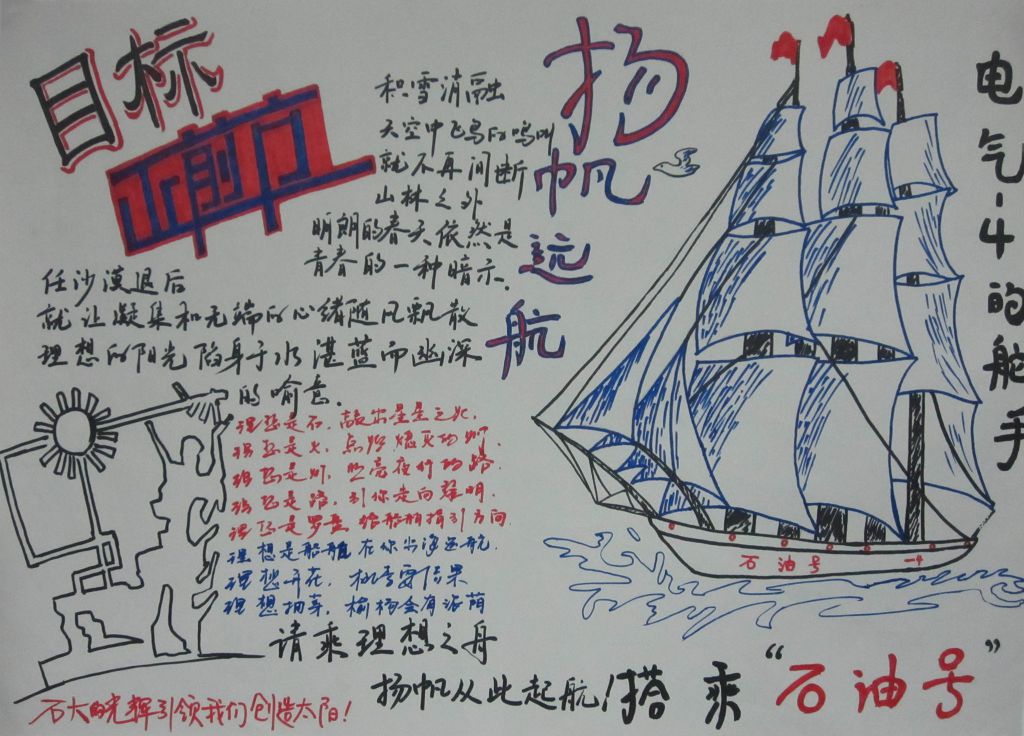 目标
正前方
扬帆远航
电气-4的舵手
和雪消融
天空中飞鸟的鸣叫
就不再间断
山林之外
明朗的春天依然是
青春的一种暗示.
任沙漠退后
就让凝集和无端的心绪随风飘散
理想的阳光陷身于水湛蓝而幽深
的喻意.
理想是石,敲出星星之火.
理想是火,点燃熄灭的灯.
理想是灯,照亮夜行的路.
理想是路,引你走向黎明.
理想是罗盘 给船舶指引方向.
理想是船舶 在你出海远航.
理想开花,桃李要结果
理想抽芽,榆杨会有浓荫
请乘理想之舟
扬帆从此起航!
搭乘“石油号”
石油号 -4
石大的光辉引领我们创造太阳!